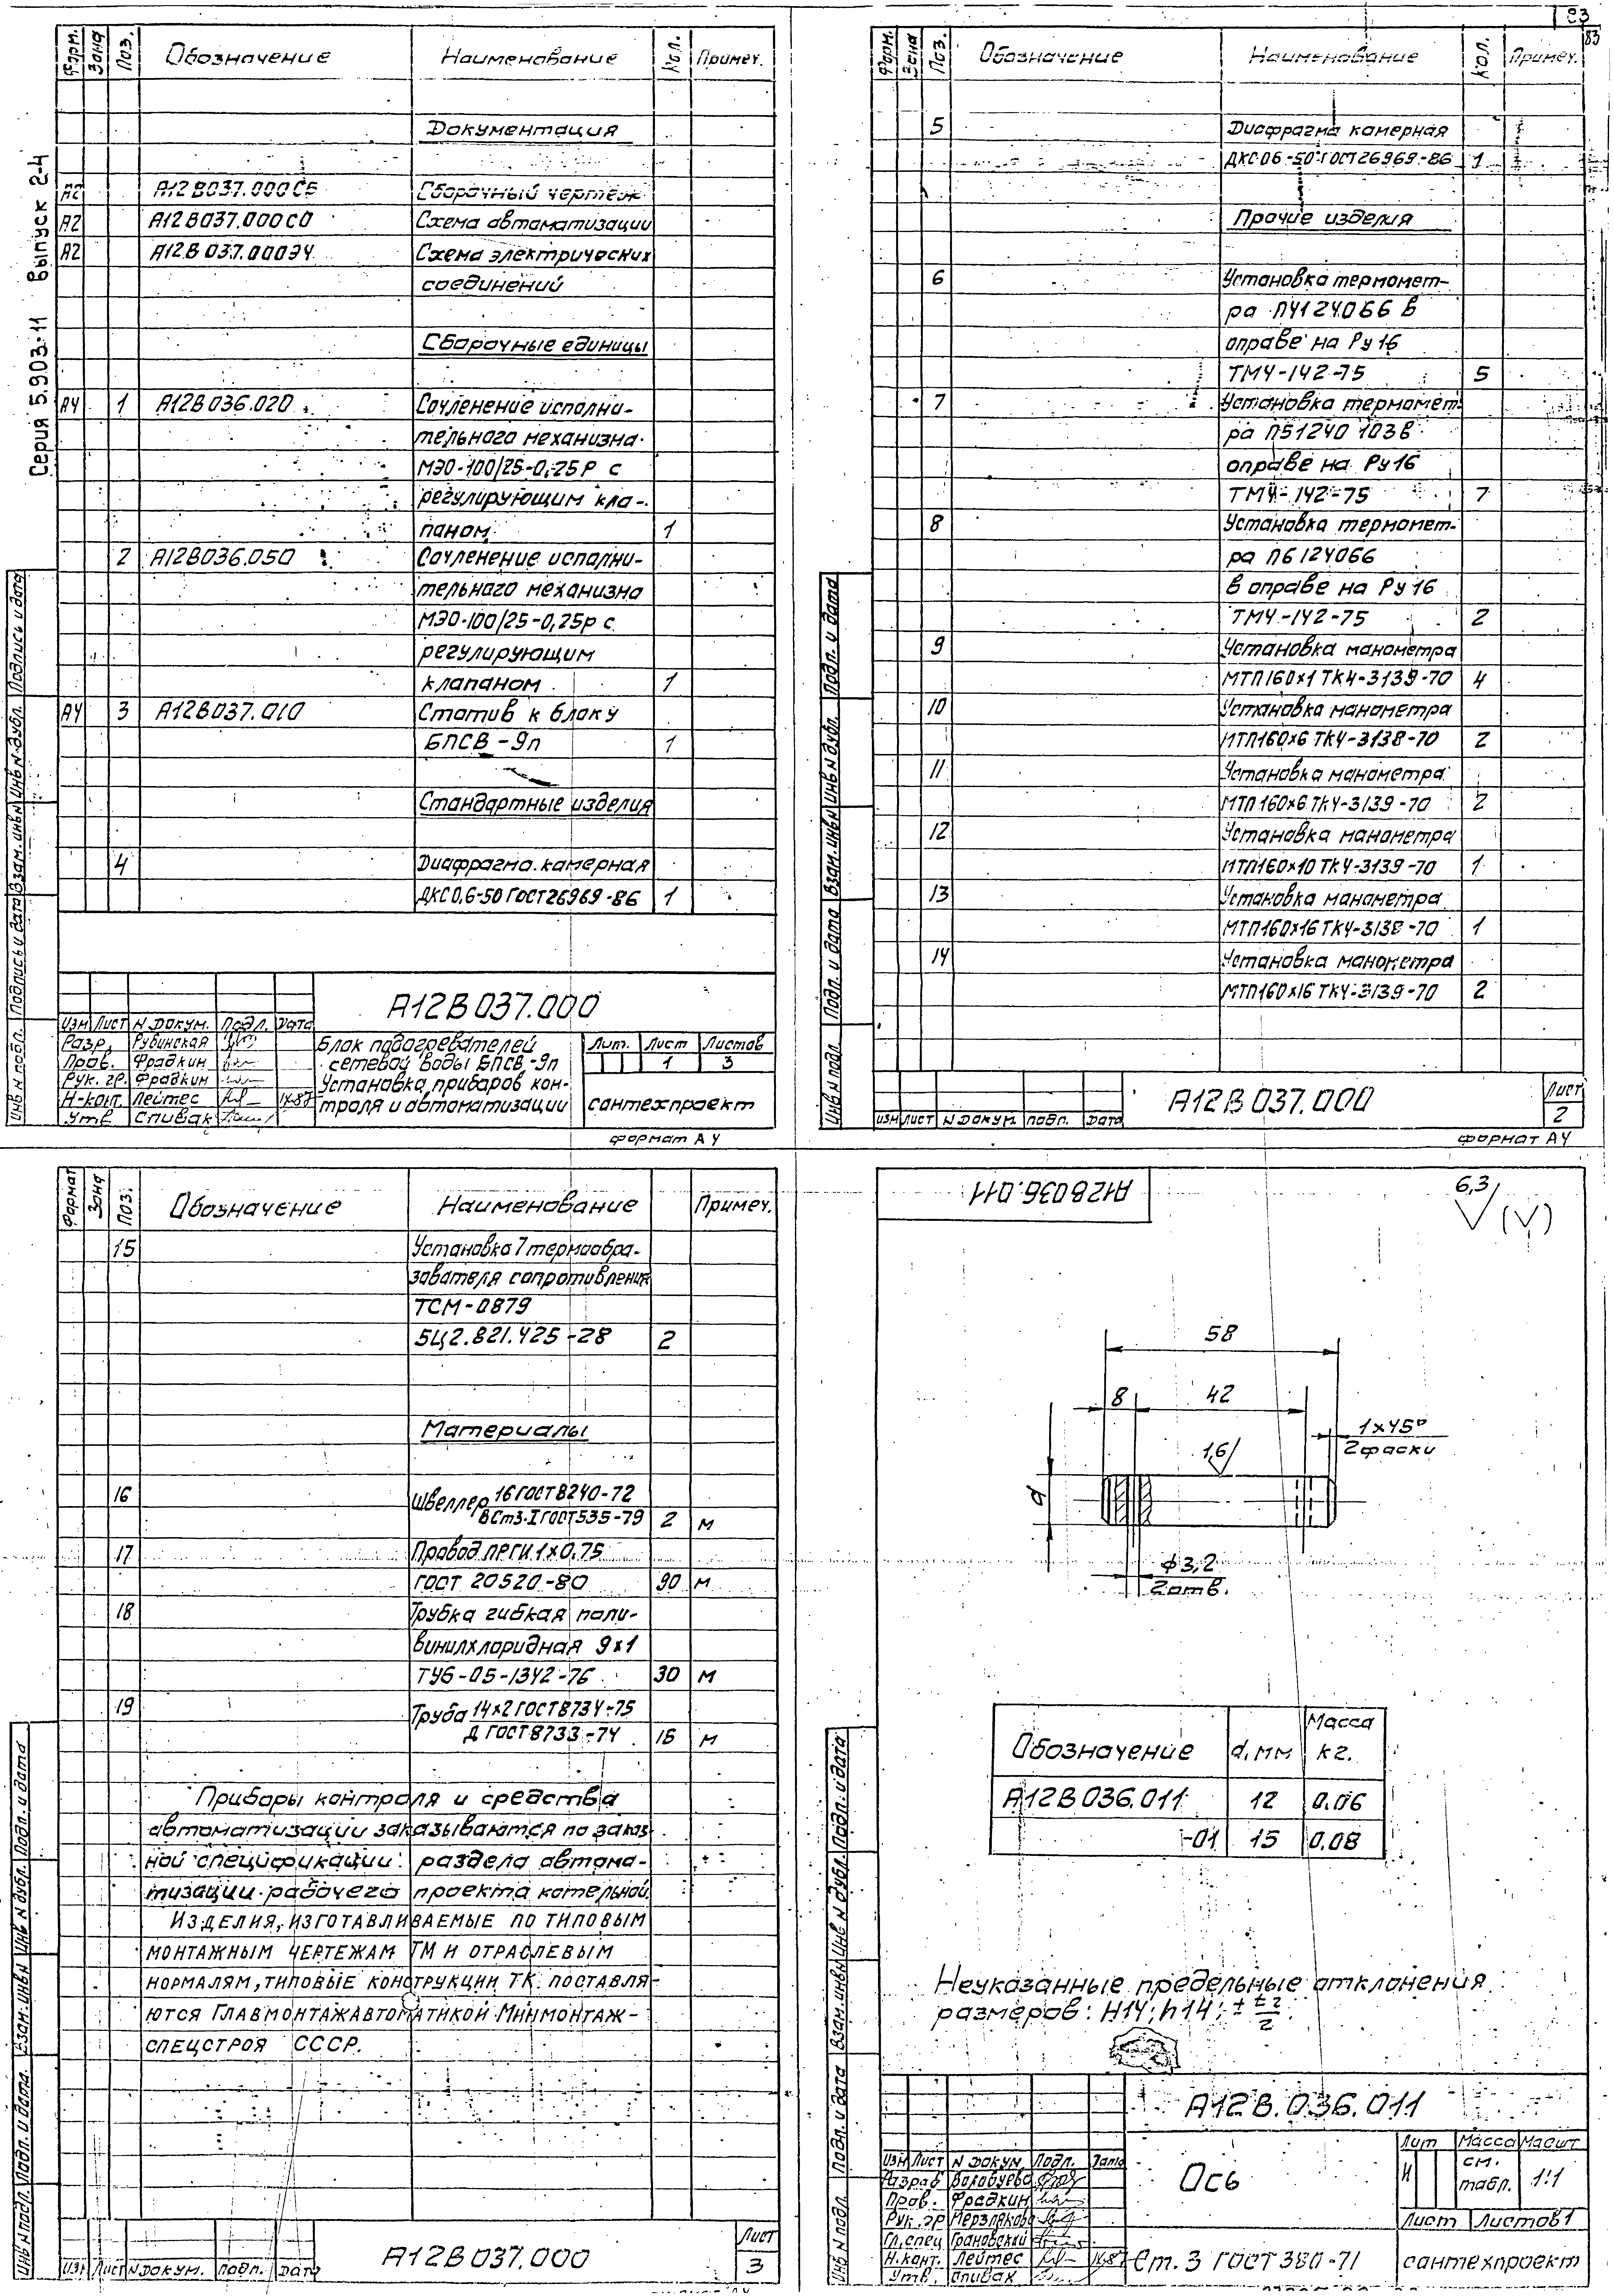 83
83
Серия 5.903-11 Выпуск 2-4
Форм.
Зона
Поз.
Обозначение
Наименование
Кол.
Примеч.
Документация
А2 А12В037.000СБ Сборочный чертеж
А2 А12В037.000С0 Схема автоматизации
А2 А12В037.000Э4 Схема электрических
соединений
Сборочные единицы
А4 1 А12В036.020 Сочленение исполни-
тельного механизма
МЭО-100/25-0,25Р с
регулирующим кла-
паном 1
2 А12В036.050 Сочленение исполни-
тельного механизма
МЭО-100/25-0,25р с
регулирующим
клапаном 1
А4 3 А12В037.010 Статив к блоку
БПСВ-9п 1
Стандартные изделия
4 Диафрагма камерная
ДКС 0,6-50 ГОСТ 26969-86 1
А12В037.000
Изм Лист N докум. Подл. Дата
Разр. Рубинская
Пров. Фрадкин
Рук. гр. Фрадкин
Н-конт. Лейтес IX-87
Утв Спивак
Блок подогревателей
сетевой воды БПСВ-9п
Установка приборов кон-
троля и автоматизации
Лит. Лист Листов
1 3
сантехпроект
формат А4
Инв N подл. Подпись и дата Взам. инв N Инв N дубл. Подпись и дата
Форм.
Зона
Поз.
Обозначение
Наименование
Кол.
Примеч.
5 Диафрагма камерная
ДКС 06-50 ГОСТ 26969-86 1
Прочие изделия
6 Установка термомет-
ра П4124066 в
оправе на Ру16
ТМ4-142-75 5
7 Установка термомет-
ра П51240 103 в
оправе на Ру16
ТМ4-142-75 7
8 Установка термомет-
ра П6124066
в оправе на Ру16
ТМ4-142-75 2
9 Установка манометра
МТП160х1 ТК4-3139-70 4
10 Установка манометра
МТП160х6 ТК4-3138-70 2
11 Установка манометра
МТП160х6 ТК4-3139-70 2
12 Установка манометра
МТП160х10 ТК4-3139-70 1
13 Установка манометра
МТП160х16 ТК4-3138-70 1
14 Установка манометра
МТП160х16 ТК4-3139-70 2
Изм Лист N докум. подп. Дата
А12В037.000
Лист
2
формат А4
Инв N подл. Подп. и дата Взам. инв N Инв N дубл. Подп. и дата
Формат
Зона
Поз.
Обозначение
Наименование
Примеч.
15 Установка 7 термообра-
зователя сопротивления
ТСМ-0879
5Ц2.821.425-28 2
Материалы
16 Швеллер 16 ГОСТ 8240-72
ВСт3-I ГОСТ 535-79 2 м
17 Провод ПГГИ 1х0,75
ГОСТ 20520-80 90 м
18 Трубка гибкая поли-
винилхлоридная 9х1
ТУ6-05-1342-76 30 м
19 Труба 14х2 ГОСТ 8734-75
Д ГОСТ 8733-74 16 м
Приборы контроля и средства
автоматизации заказываются по заказ-
ной спецификации раздела автома-
тизации рабочего проекта котельной.
Изделия, изготавливаемые по типовым
монтажным чертежам ТМ и отраслевым
нормалям, типовые конструкции ТК поставля-
ются Главмонтажавтоматикой Минмонтаж-
спецстроя СССР.
Изм Лист N докум. подп. Дата
А12В037.000
Лист
3
Инв N подл. Подп. и дата Взам. инв N Инв N дубл. Подп. и дата
А12В036.011
6,3
(√)
58
8
42
1х45°
2 фаски
1,6
d
ф3,2
2 отв.
Обозначение d, мм Масса кг.
А12В036.011 12 0.06
-01 15 0,08
Неуказанные предельные отклонения
размеров: Н14; h14; ± t2/2
А12В.036.011
Изм Лист N докум. Подл. Дата
Разраб
Пров. Фрадкин
Рук. гр Мерзлякова
Гл. спец Грановский
Н.конт. Лейтес IX-87
Утв. Спивак
Ось
Лит Масса Масшт
И см. табл. 1:1
Лист Листов 1
Ст. 3 ГОСТ 380-71
сантехпроект
Инв N подл. Подп. и дата Взам. инв N Инв N дубл. Подп. и дата